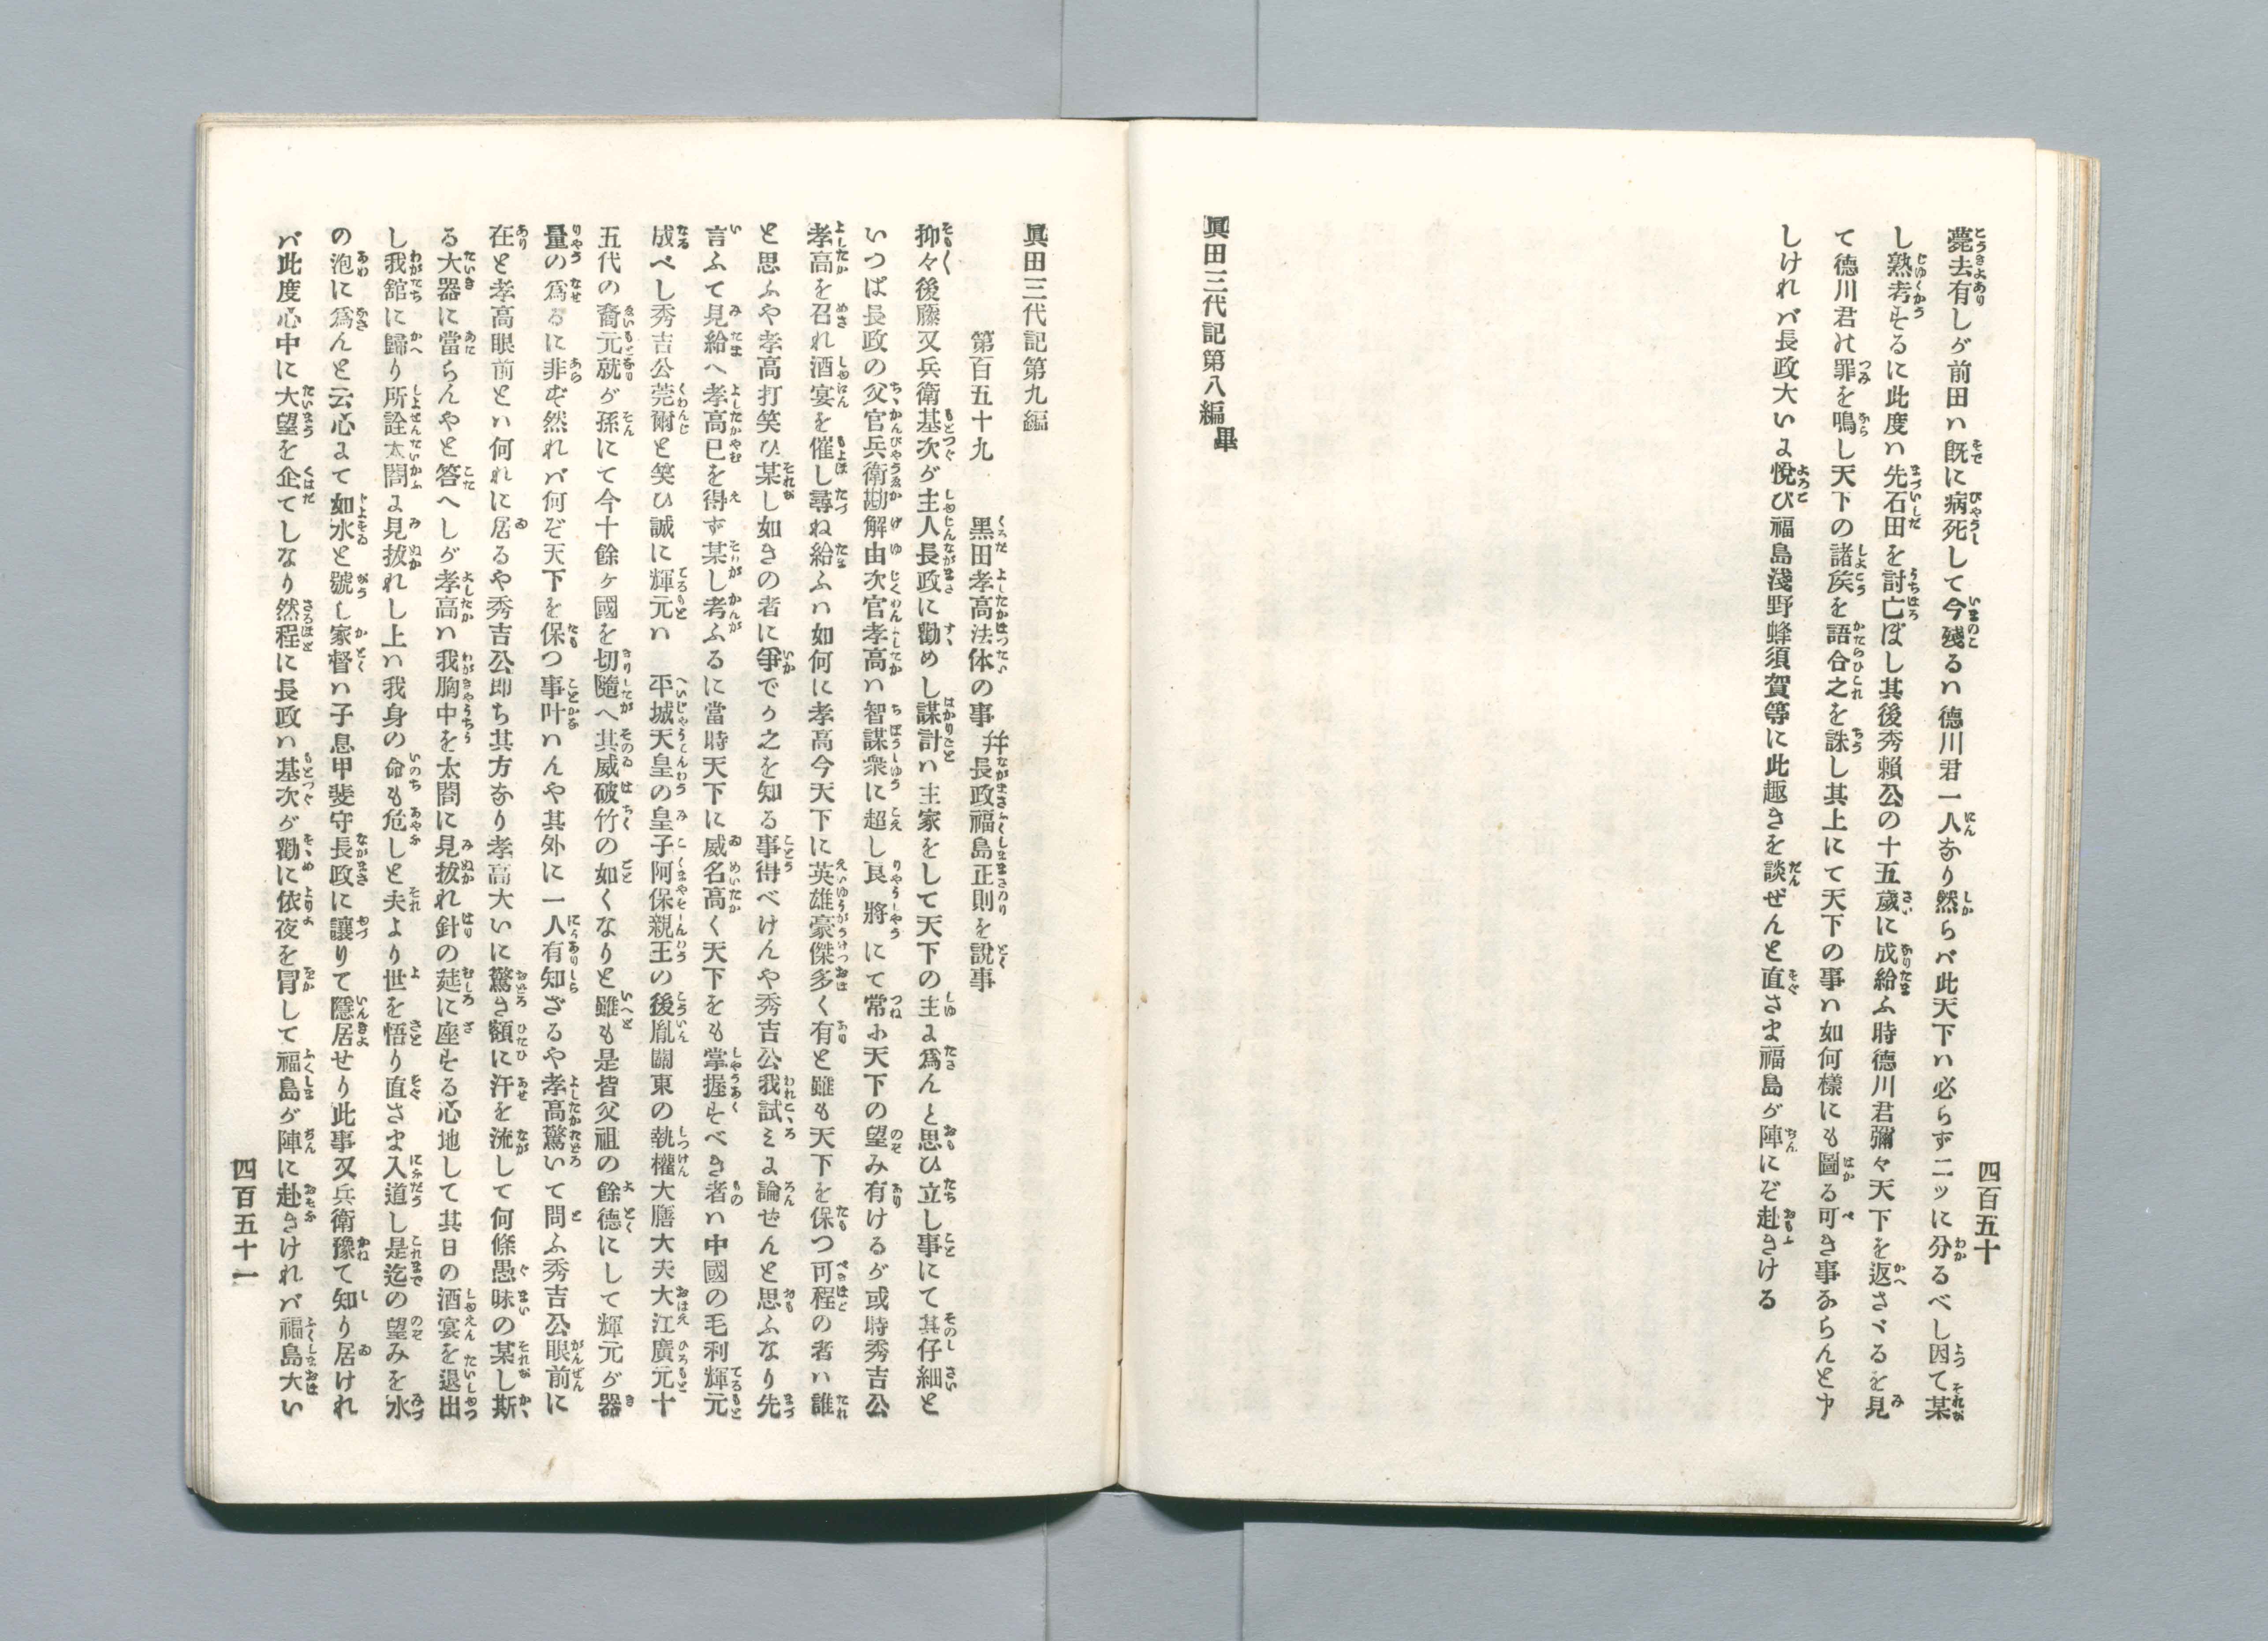 四百五十
薨去有しが前田ハ既に病死して今殘るハ德川君一人なり然らバ此天下ハ必らず二ッに分るべし因て某
し熟考するに此度ハ先石田を討亡ぼし其後秀賴公の十五歲に成給ふ時德川君彌々天下を返さゞるを見
て德川君の罪を鳴し天下の諸矦を語合之を誅し其上にて天下の事ハ如何樣にも圖る可き事ならんと申
しけれバ長政大いに悅び福島淺野蜂須賀等に此趣きを談ぜんと直さま福島が陣にぞ赴きける
眞田三代記第八編畢
眞田三代記第九編
第百五十九　黑田孝高法体の事幷長政福島正則を說事
抑々後藤又兵衛基次が主人長政に勸めし謀計ハ主家をして天下の主に爲んと思ひ立し事にて其仔細と
いつぱ長政の父官兵衛勘解由次官孝高ハ智謀衆に超し良將にて常に天下の望み有けるが或時秀吉公
孝高を召れ酒宴を催し尋ね給ふハ如何に孝高今天下に英雄豪傑多く有と雖も天下を保つ可程の者ハ誰
と思ふや孝高打笑ひ某し如きの者に爭でか之を知る事得べけんや秀吉公我試ミに論ぜんと思ふなり先
言ふて見給へ孝高已を得ず某し考ふるに當時天下に威名高く天下をも掌握すべき者ハ中國の毛利輝元
成べし秀吉公莞爾と笑ひ誠に輝元ハ　平城天皇の皇子阿保親王の後胤關東の執權大膳大夫大江廣元十
五代の裔元就が孫にて今十餘ヶ國を切隨へ其威破竹の如くなりと雖も是皆父祖の餘德にして輝元が器
量の爲るに非ず然れバ何ぞ天下を保つ事叶ハんや其外に一人有知ざるや孝高驚いて問ふ秀吉公眼前に
在と孝高眼前とハ何れに居るや秀吉公即ち其方なり孝高大いに驚き額に汗を流して何條愚昧の某し斯
る大器に當らんやと答へしが孝高ハ我胸中を太閤に見拔れ針の莚に座する心地して其日の酒宴を退出
し我舘に歸り所詮太閤に見拔れし上ハ我身の命も危しと夫より世を悟り直さま入道し是迄の望みを水
の泡に爲んと云心にて如水と號し家督ハ子息甲斐守長政に讓りて隱居せり此事又兵衛豫て知り居けれ
バ此度心中に大望を企てしなり然程に長政ハ基次が勸に依夜を冒して福島が陣に赴きけれバ福島大い
四百五十一